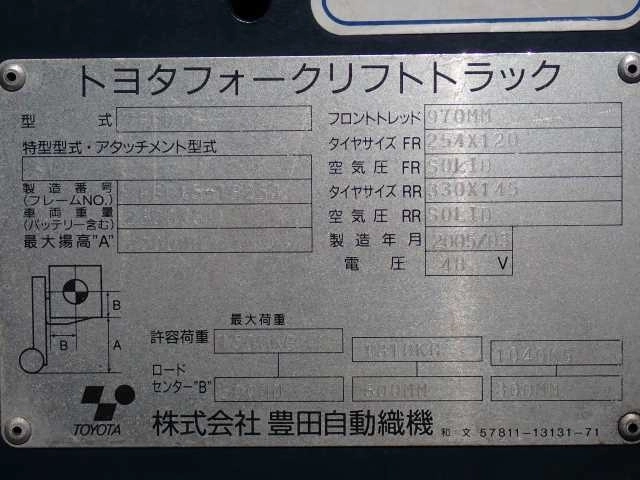 トヨタフォークリフトトラック
型 式
フロントトレッド 970MM
タイヤサイズ FR 254X120
特型型式・アタッチメント型式
空気圧 FR SOLID
製造番号
(フレームNO.)
タイヤサイズ RR 330X145
車両重量
(バッテリー含む)
空気圧 RR SOLID
最大揚高"A"
製造年月 2005/03
電圧 48 V
B
B
A
最大荷重
許容荷重 1310KG 1040KG
ロード
センター"B" 500MM 600MM 800MM
TOYOTA
株式会社 豊田自動織機
和文 57811-13131-71